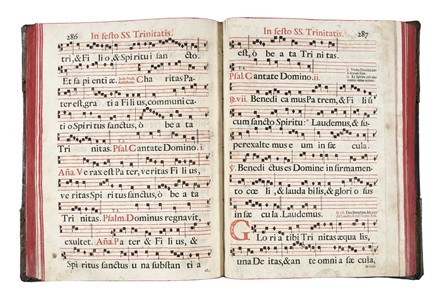 286
In festo SS. Trinitatis.
tri, & Filio, & Spiritui sancto.
Et sapientiæ. Charitas Pa-
ter est, gratia Filius, communica-
tio Spiritus sanctus, ô beata
Trinitas. Psal. Cantate Domino. i.
Aña. Verax est Pater, veritas Filius,
veritas Spiritus sanctus, ô beata
Trinitas. Psalm. Dominus regnavit,
exultet. Aña. Pater & Filius, &
Spiritus sanctus una substantia
In festo SS. Trinitatis.
287
est, ô beata Trinitas.
Psal. Cantate Domino. ii.
℟. vii. Benedicamus Patrem, & Filiũ
cum sancto Spiritu: Laudemus, & su-
perexaltemus eum in sæcula.
℣. Benedictus es Domine in firmamen-
to cœli, & laudabilis, & gloriosus
in sæcula. Laudemus.
Gloria tibi Trinitas æqualis,
una Deitas, & ante omnia sæcula,